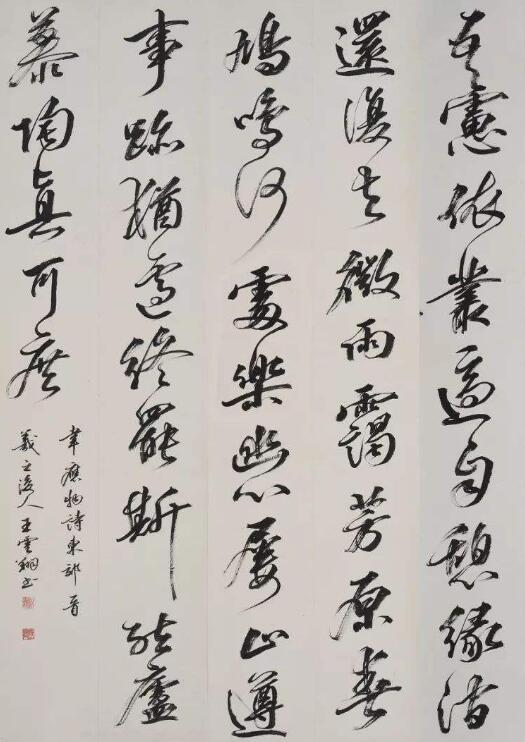 吾慮依叢適自憩緣澗
還復去微雨靄芳原春
鳩鳴何處樂幽心屢止遵
事跡猶遽終罷斯結廬
慕陶真可庶
韋應物詩東郊晉
羲之後人王雲翔書